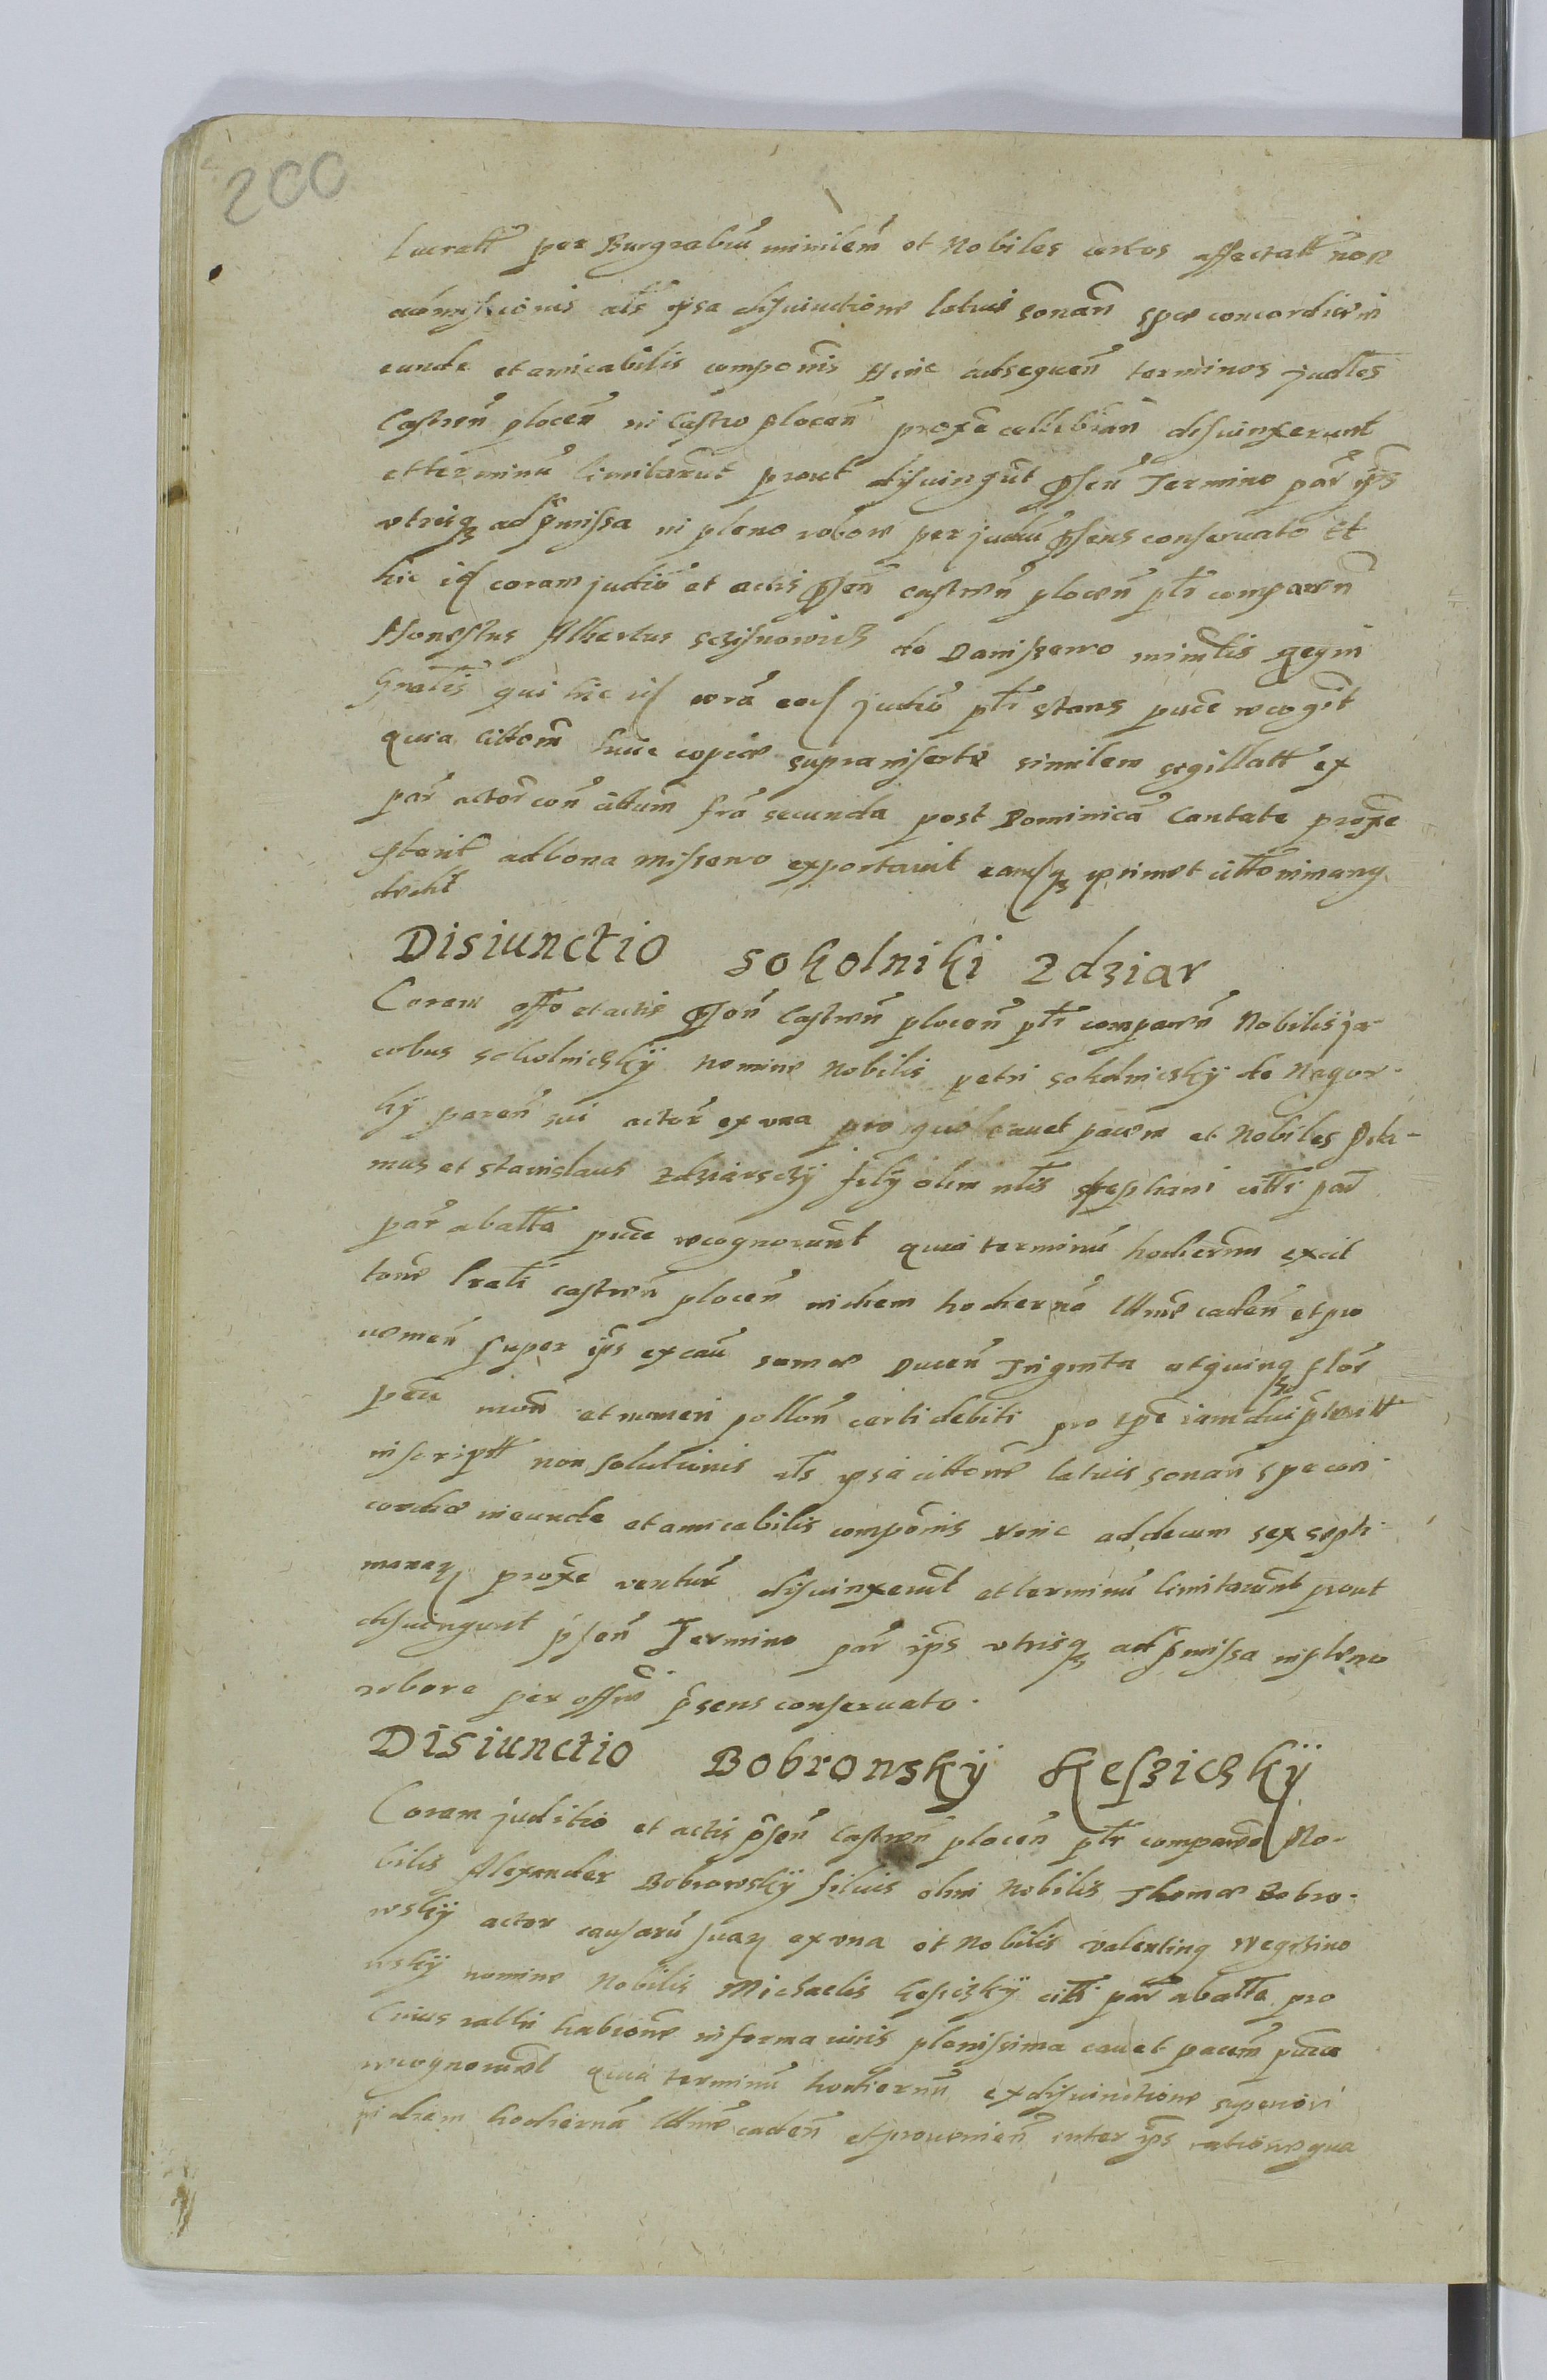 200
lucratt per Burgrabiu minilem et Nobiles certos affectatt non
admissionis als ipsa disiunctione latius sonan spe concordie in
eunde et amicabilis componis Hinc ad sequen terminos judles
Castren plocen in Castro plocen proxe cellebran disiunxerunt
et terminu limitarut prout disiungut psen Termino par ips
utrisq ad pmissa in pleno robore per judiu psens conservato Et
hic id coram judio et actis psen castren plocen plr comparen
Honestus Albertus de Daniszewo minlis Regni
Gnalis qui hic id cora eod judio plr stans puce recogit
quia littom huic copie supra inserte similem sigillatt ex
par actor con fra secunda post Dominica Cantate proxe
pterit ad bona Miszewo exportavit eamsq
dedit
Disiunctio Sokolniki Zdziar
Coram offo et actis psen Castren plocen plr comparen Nobilis ja-
cobus Sokolnicskÿ nomine Nobilis petri Sokolnicskÿ de Nagor-
kÿ paren sui actor ex una pro quo cavet pacem et Nobiles Ada-
mus et Stanislaus Zdziarsckÿ filÿ olim nlis Stephani citti par
par ab atta puce recognorunt quia terminu hodiernu ex cit
tone lrali castren plocen in diem hodierna Ulme caden et pro
venien super ips ex cau some Ducen Triginta et quinq flor
pecu mon et numeri pollon certi debiti pro
inscriptt non solutionis als ipsa cittone latius sonan spe con
cordie ineunde et amicabilis componis Hinc ad decem sex septi
manaz proxe ventur disiunxerut et terminu limitarunt prout
disiungunt psen Termino par ips utrisq ad pmissa in pleno
robore per offm psens conservato.
Disiunctio Bobronskÿ Keszicskÿ
Coram juditio et actis psen Castren plocen plr comparen No-
bilis Alexander Bobrowskÿ filius olim Nobilis Thome Bobro-
wskÿ actor causaru suaz ex una et Nobilis Valentinq
wskÿ nomine Nobilis Michaelis Kesickÿ citti par ab atta pro
cuius ratti habione in forma iuris plenissima cavet pacem puce
recognorut quia terminu hodiernu ex disiunctione superiori
in diem hodierna Ulme caden et provenien inter ips ratione qua